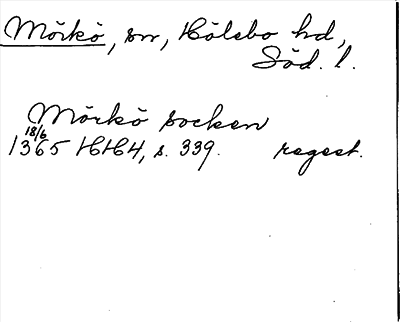 Mörkö, sn, Hölebo hd,
Söd. l.
Mörkö socken
18/6
1365 HH4, s. 339. regest.